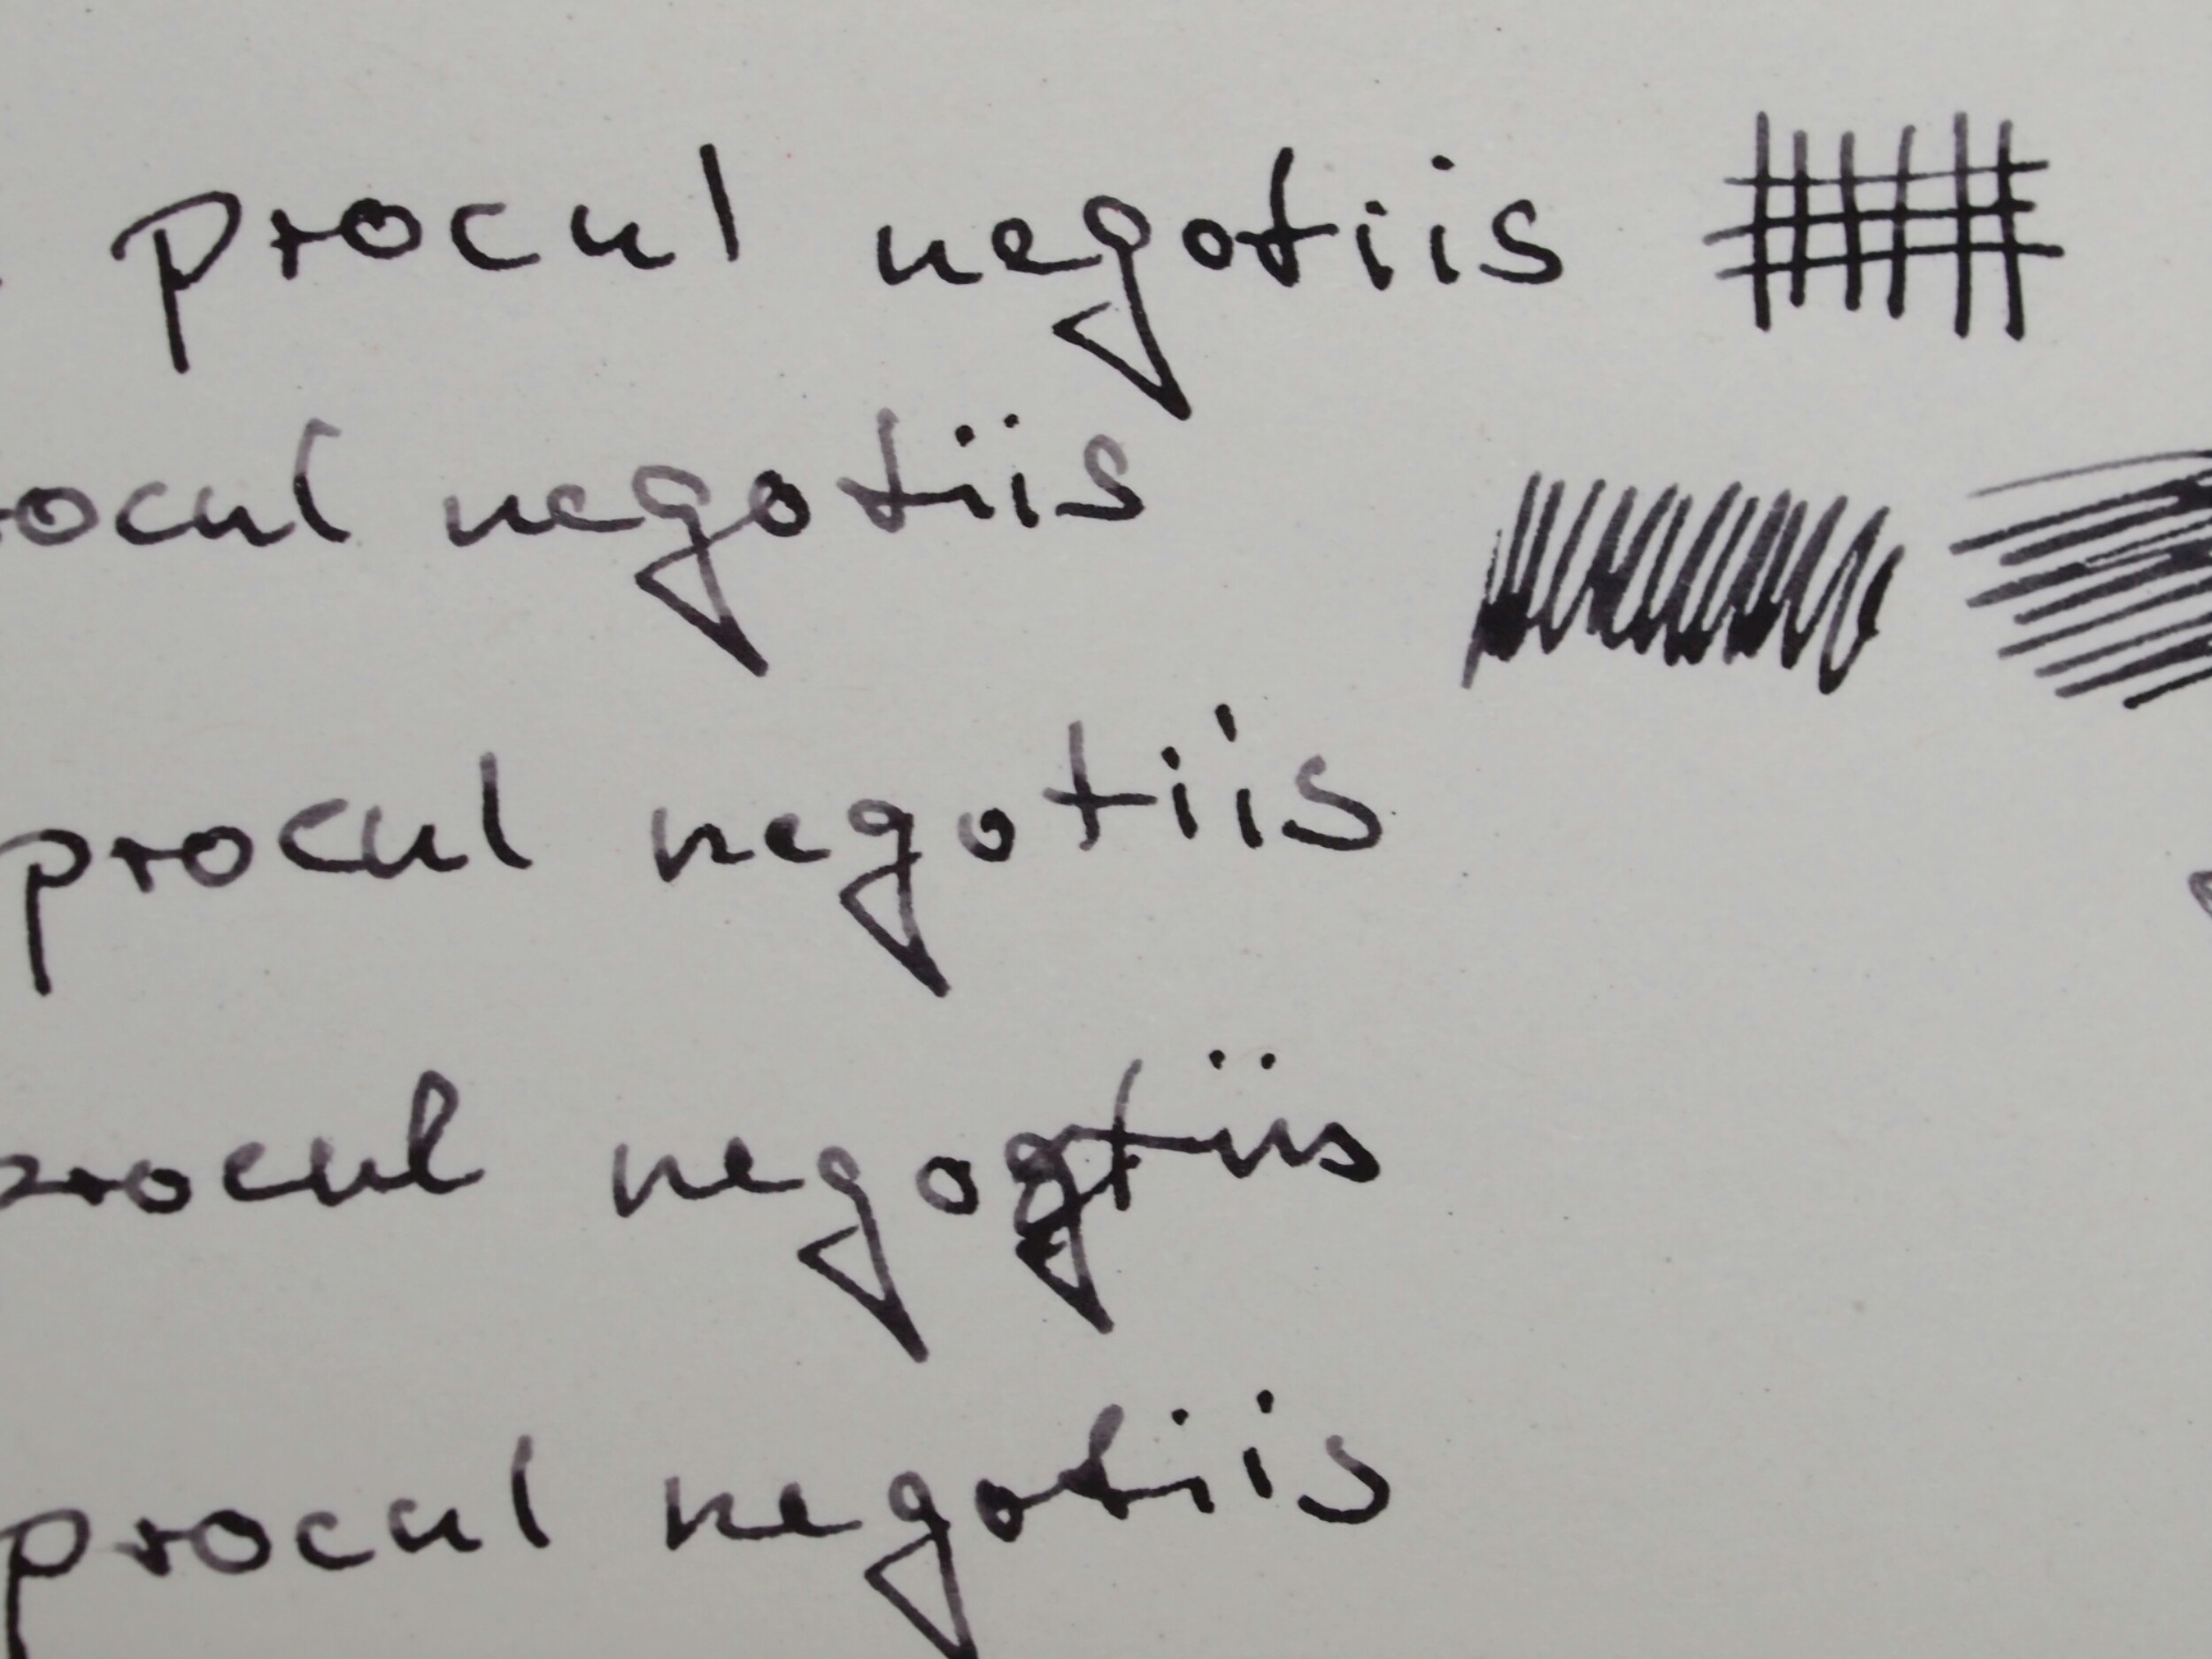 procul negotiis
ocul negotiis
procul negotiis
procul negogtiis
procul negotiis